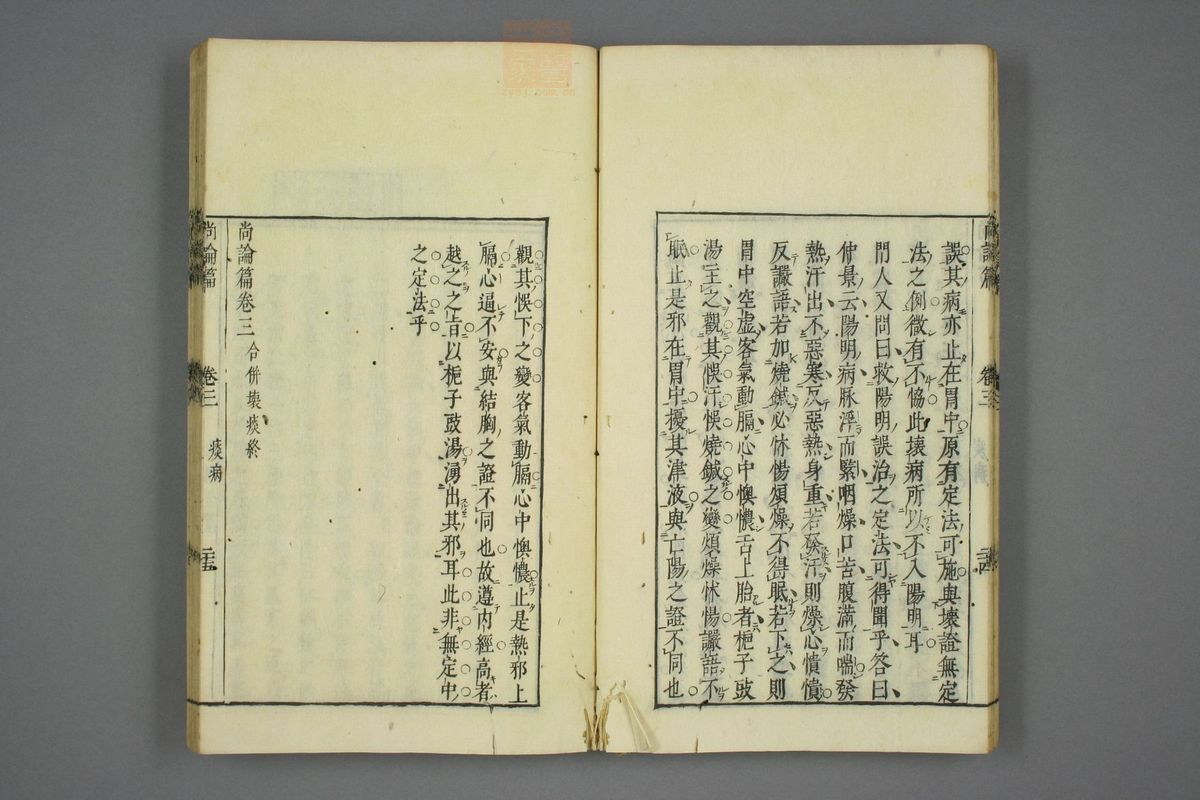 誤其病亦止在胃中原有定法可施與壞證無定
法之例微有不恊此壞病所以不入陽明耳
門人又問曰救陽明誤治之定法可得聞乎答曰
仲景云陽明病脉浮而緊咽燥口苦腹滿而喘發
熱汗出不惡寒反惡熱身重若發汗則燥心憒憒
反讝語若加燒鍼必怵惕煩燥不得眠若下之則
胃中空虛客氣動膈心中懊憹舌上胎者梔子豉
湯主之觀其悞汗悞燒鍼之變煩燥怵惕讝語不
眠止是邪在胃中擾其津液與亡陽之證不同也
尚論篇
卷三
痰病
二十四
觀其悞下之變客氣動膈心中懊憹止是熱邪上
膈心逼不安與結胸之證不同也故遵内經高者
越之之旨以梔子豉湯湧出其邪耳此非無定中
之定法乎
尚論篇卷三 合併壞痰終
尚論篇
卷三
痰病
二十五
zysj.com.cn